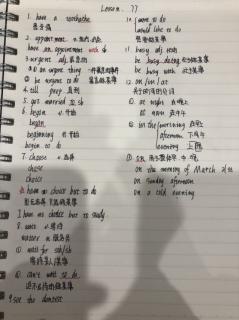 Lesson. 77
1. have a toothache
牙疼
2. appointment n. 预约,约会
have an appointment with sb
3. urgent adj. 紧急的
① an urgent thing 一件紧急的事情
② be urgent to do 急忙做某事
4. till prep 直到
5. get married to sb
6. begin v. 开始
began
beginning n. 开始
begin to do
7. choose v. 选择
chose
choice
have no choice but to do
别无选择只能做某事
I have no choice but to study.
8. wait v. 等待
waiter n. 服务员
① wait for sb/sth
等待某人/某事
② can't wait to do
迫不及待的做某事
9. see the dentist
10. want to do
would like to do
想要做某事
11. busy adj. 忙的
be busy doing 忙于做某事
be busy with 忙于某事
12. on/in/at
关于时间的介词
① at night 在晚上
at noon 在中午
② in the morning 在早上
afternoon 下午
evening 上
③ on
on the morning of March 21st
on Sunday afternoon
on a cold evening